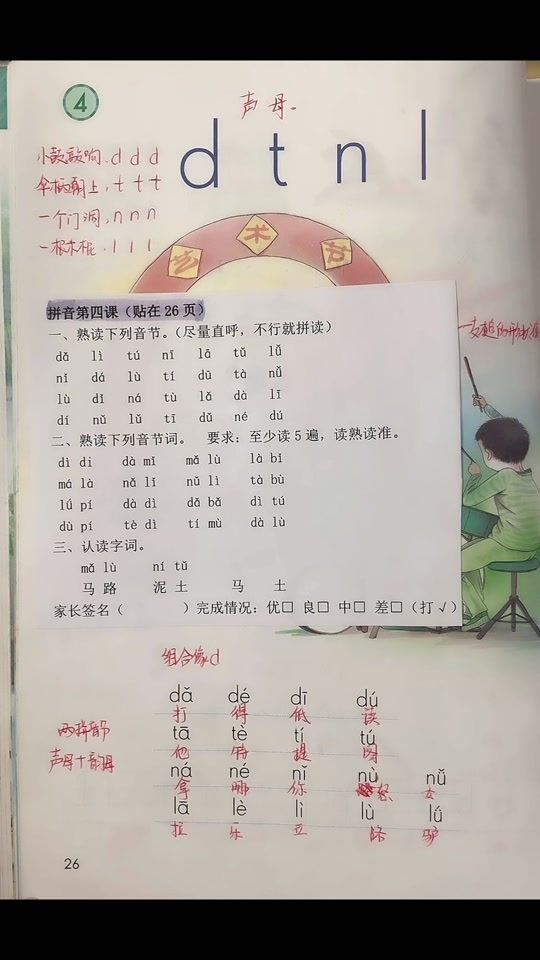 4
声母
d t n l
小鼓敲响,d d d
伞柄朝上,t t t
一个门洞,n n n
一根木棍,l l l
艺术节
拼音第四课(贴在26页)
一、熟读下列音节。(尽量直呼,不行就拼读)
dǎ lì tú nǐ lā tǔ lǚ
nǐ dá lù tí dū tà nǚ
lù dǐ ná tù lǎ dà lī
dí nǔ lǔ tī dǔ né dú
二、熟读下列音节词。 要求:至少读5遍,读熟读准。
dì di dà mǐ mǎ lù là bǐ
má là nǎ lǐ nǔ lì tà bù
lǘ pí dà dì dǎ bǎ dì tú
dù pí tè dì tí mù dà lù
三、认读字词。
mǎ lù ní tǔ
马 路 泥 土 马 土
家长签名( )完成情况:优□ 良□ 中□ 差□(打√)
组合像d
dǎ dé dī dú
打 得 低 读
tā tè tí tú
他 特 提 图
两拼音节
声母+韵母
ná né nǐ nù nǚ
拿 哪 你 怒 女
lā lè lì lù lǘ
拉 乐 立 路 驴
26